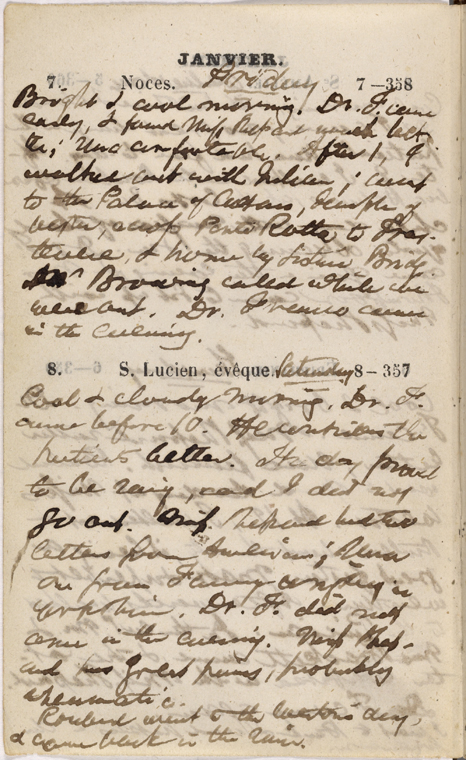 JANVIER.
7. Noces. Friday 7-358
Bright & cool morning. Dr. F. came
early, & found Miss Shepard much bet-
ter; Una comfortable. After 1, I
walked out with Julian; went
to the Palace of Caesars, Temple of
Vesta, across Ponte Rotto to Tras-
tevere, & home by Sistine Bridge.
Mr Browning called while we
were out. Dr. Franco came
in the evening.
8. S. Lucien, évêque. Saturday 8-357
Cool & cloudy morning. Dr. F.
came before 10. He considers the
patients better. The day proved
to be rainy, and I did not
go out. Miss Shepard had two
letters from Americans; Una
one from Fanny
Yorkshire. Dr. F. did not
come in the evening. Miss Shep-
ard has great pains, probably
rheumatic.
went to the this day,
& came back in the rain.